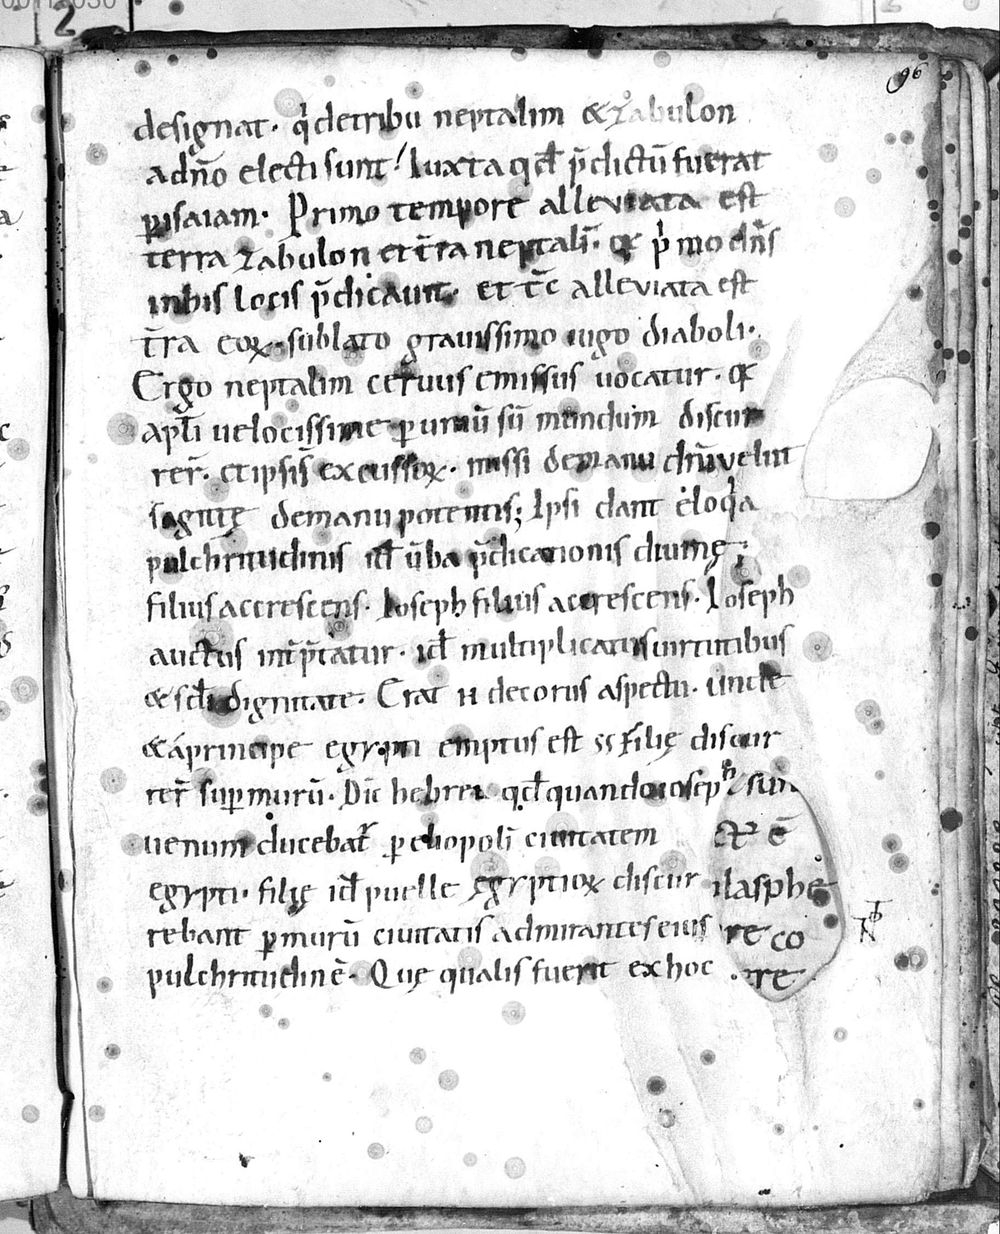 96
designat. qͥ detribu neptalim & zabulon
adño electi sunt! Iuxta qđ p̄dictū fuerat
ꝑisaiam. Primo tempore alleviata est
terra zabulon et t̄ra neptalī. qꝛ pͥmo dñs
inhis locis p̄dicauit. et tc̄ alleviata est
t̄ra eoꝝ. sublato grauissimo iugo diaboli.
Ergo neptalim ceruus emissus uocatur. qꝛ
apłi uelocissime ꝑ uniūsū mundum discur
rer̄. et ipsis excussoꝝ. missi demanu dñi velut
sagittę demanu potentis; Ipsi dant eloqͥa
pulchritudinis idł ūba p̄dicationis diuinę;
filius accrescens. Ioseph filius accrescens. Ioseph
auctus int̄p̄tatur. idł multiplicatus uirtutibus
& scłi dignitate. Erat n decorus aspectu. unde
& aprincipe egypti emptus est ss Filię discur
rer̄ suꝑmurū. Dn̄t hebrei qđ quando ioseph
uenum ducebat̄ ꝑ eliopolī ciuitatem
egypti. filię idł puelle ęgyptioꝝ discur
rebant ꝑ murū ciuitatis admirantes eius
pulchritudinē. Quę qualis fuerit ex hoc